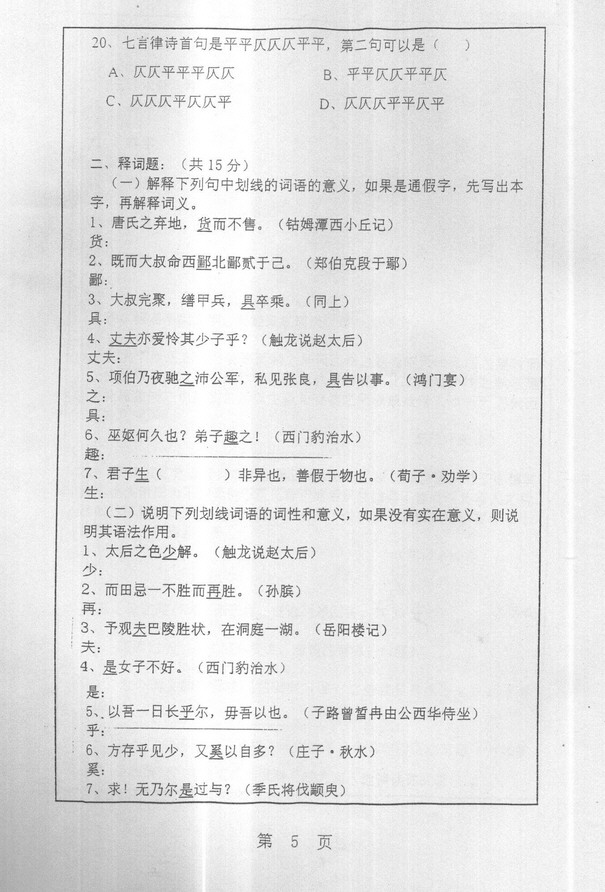 20、七言律诗首句是平平仄仄仄平平，第二句可以是（　　）
A、仄仄平平平仄仄　　　　　B、平平仄仄平平仄
C、仄仄仄平仄仄平　　　　　D、仄仄仄平平仄平
二、释词题：（共15分）
（一）解释下列句中划线的词语的意义，如果是通假字，先写出本
字，再解释词义。
1、唐氏之弃地，货而不售。（钴姆潭西小丘记）
货：
2、既而大叔命西鄙北鄙贰于己。（郑伯克段于鄢）
鄙：
3、大叔完聚，缮甲兵，具卒乘。（同上）
具：
4、丈夫亦爱怜其少子乎？（触龙说赵太后）
丈夫：
5、项伯乃夜驰之沛公军，私见张良，具告以事。（鸿门宴）
之：
具：
6、巫妪何久也？弟子趣之！（西门豹治水）
趣：
7、君子生（　　　　）非异也，善假于物也。（荀子·劝学）
生：
（二）说明下列划线词语的词性和意义，如果没有实在意义，则说
明其语法作用。
1、太后之色少解。（触龙说赵太后）
少：
2、而田忌一不胜而再胜。（孙膑）
再：
3、予观夫巴陵胜状，在洞庭一湖。（岳阳楼记）
夫：
4、是女子不好。（西门豹治水）
是：
5、以吾一日长乎尔，毋吾以也。（子路曾皙冉由公西华侍坐）
乎：
6、方存乎见少，又奚以自多？（庄子·秋水）
奚：
7、求！无乃尔是过与？（季氏将伐颛臾）
第　5　页